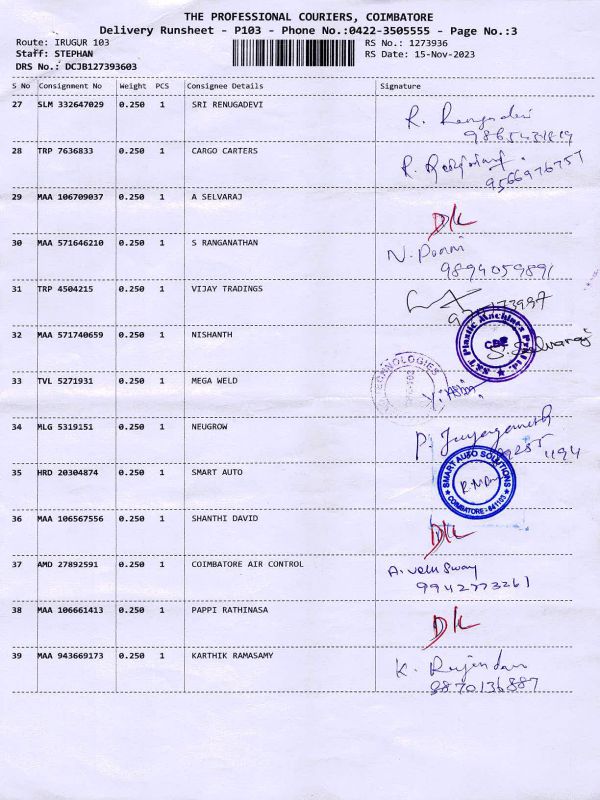 THE PROFESSIONAL COURIERS, COIMBATORE
Delivery Runsheet - P103 - Phone No.:0422-3505555 - Page No.:3
Route: IRUGUR 103 RS No.: 1273936
Staff: STEPHAN RS Date: 15-Nov-2023
DRS No.: DCJB127393603
S No Consignment No Weight PCS Consignee Details Signature
27 SLM 332647029 0.250 1 SRI RENUGADEVI
R. Rengadevi
28 TRP 7636833 0.250 1 CARGO CARTERS
9566976757
29 MAA 106709037 1 0.250 A SELVARAJ
D/L
30 MAA 571646210 0.250 1 S RANGANATHAN
N. Ponni
9894059891
31 TRP 4504215 0.250 1 VIJAY TRADINGS
32 MAA 571740659 0.250 1 NISHANTH
S&T Plastic Machines Pvt Ltd.
CBE
S. Selvaraj
33 TVL 5271931 0.250 1 MEGA WELD
34 MLG 5319151 0.250 1 NEUGROW
35 HRD 20304874 0.250 1 SMART AUTO
SMART AUTO SOLUTIONS
COIMBATORE - 641103
36 MAA 106567556 0.250 1 SHANTHI DAVID
D/L
37 AMD 27892591 0.250 1 COIMBATORE AIR CONTROL
A. velu Swamy
9942773261
38 MAA 106661413 0.250 1 PAPPI RATHINASA
D/L
39 MAA 943669173 0.250 1 KARTHIK RAMASAMY
K. Rajendan
8870136887